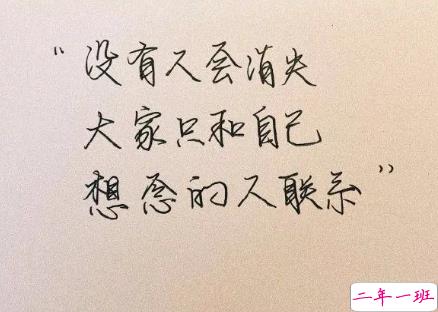 “没有人会消失
大家只和自己
想念的人联系”
二年一班